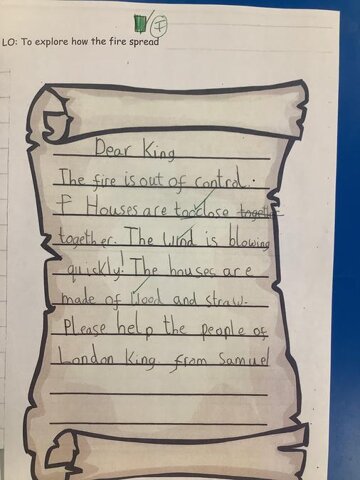 I
LO: To explore how the fire spread
Dear King
The fire is out of control.
Houses are to close
together. The wind is blowing
quickly! The houses are
made of wood and straw.
Please help the people of
London King from Samuel